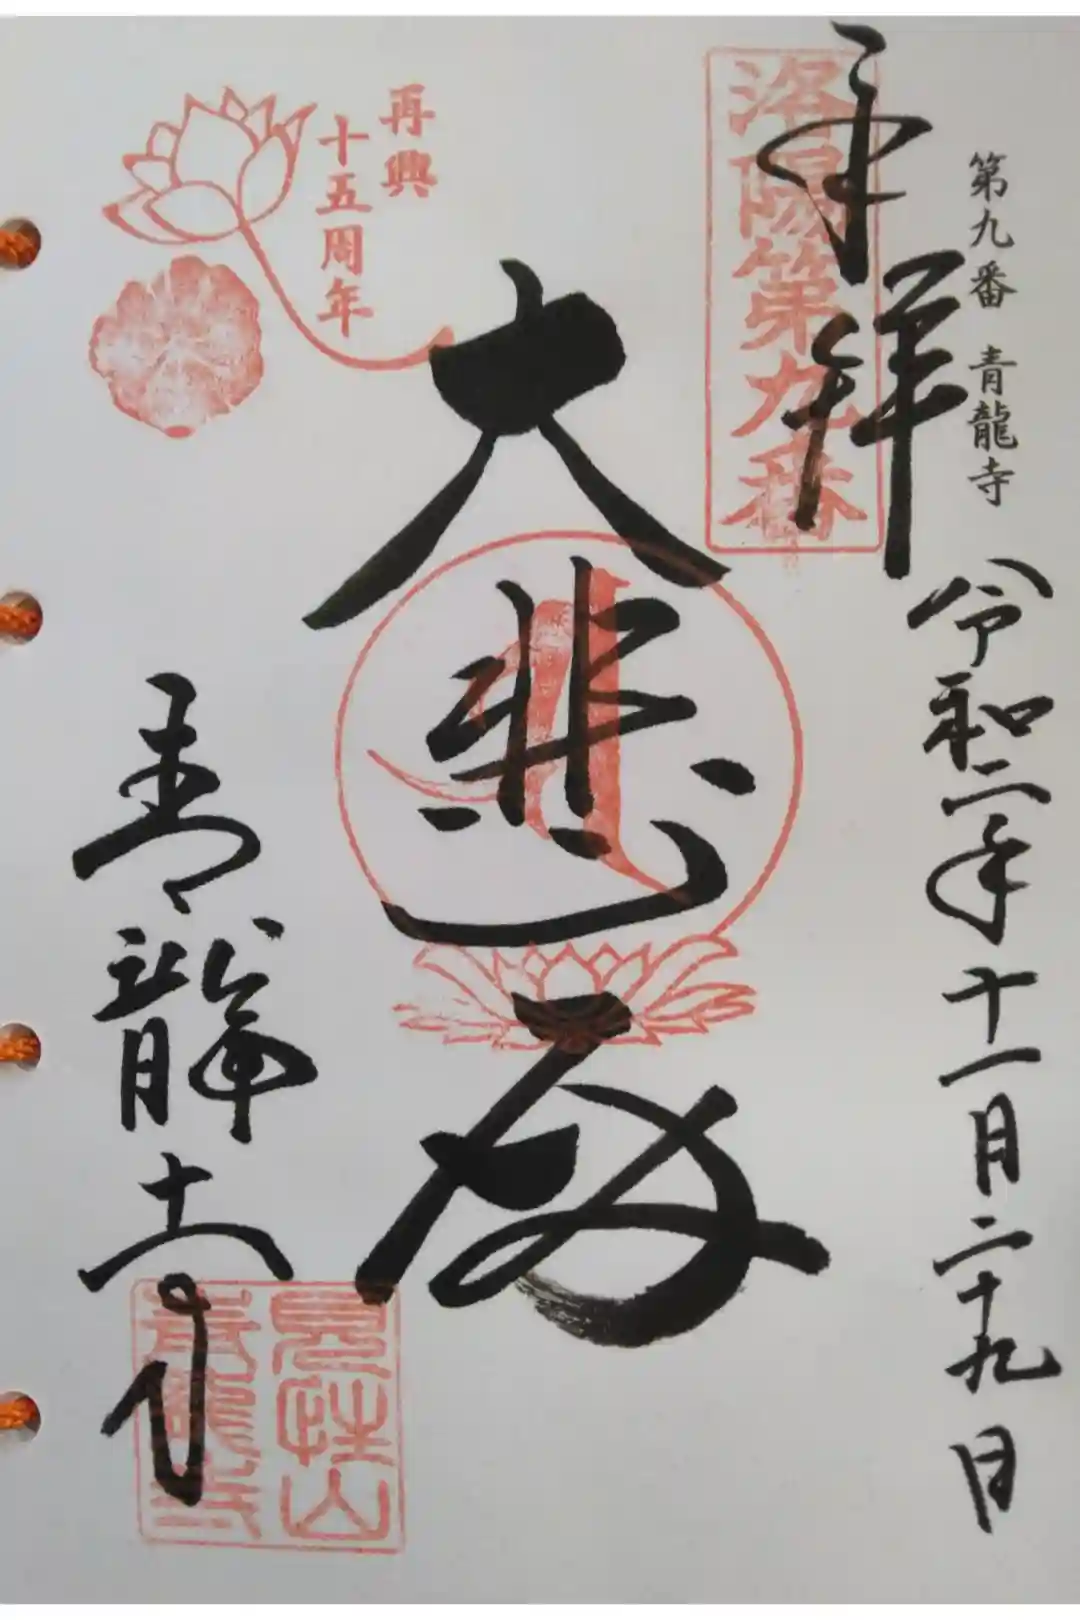 第九番 青龍寺
奉拝
令和二年十一月二十九日
洛陽第九番
大悲殿
再興
十五周年
青龍寺
見性山
青龍寺